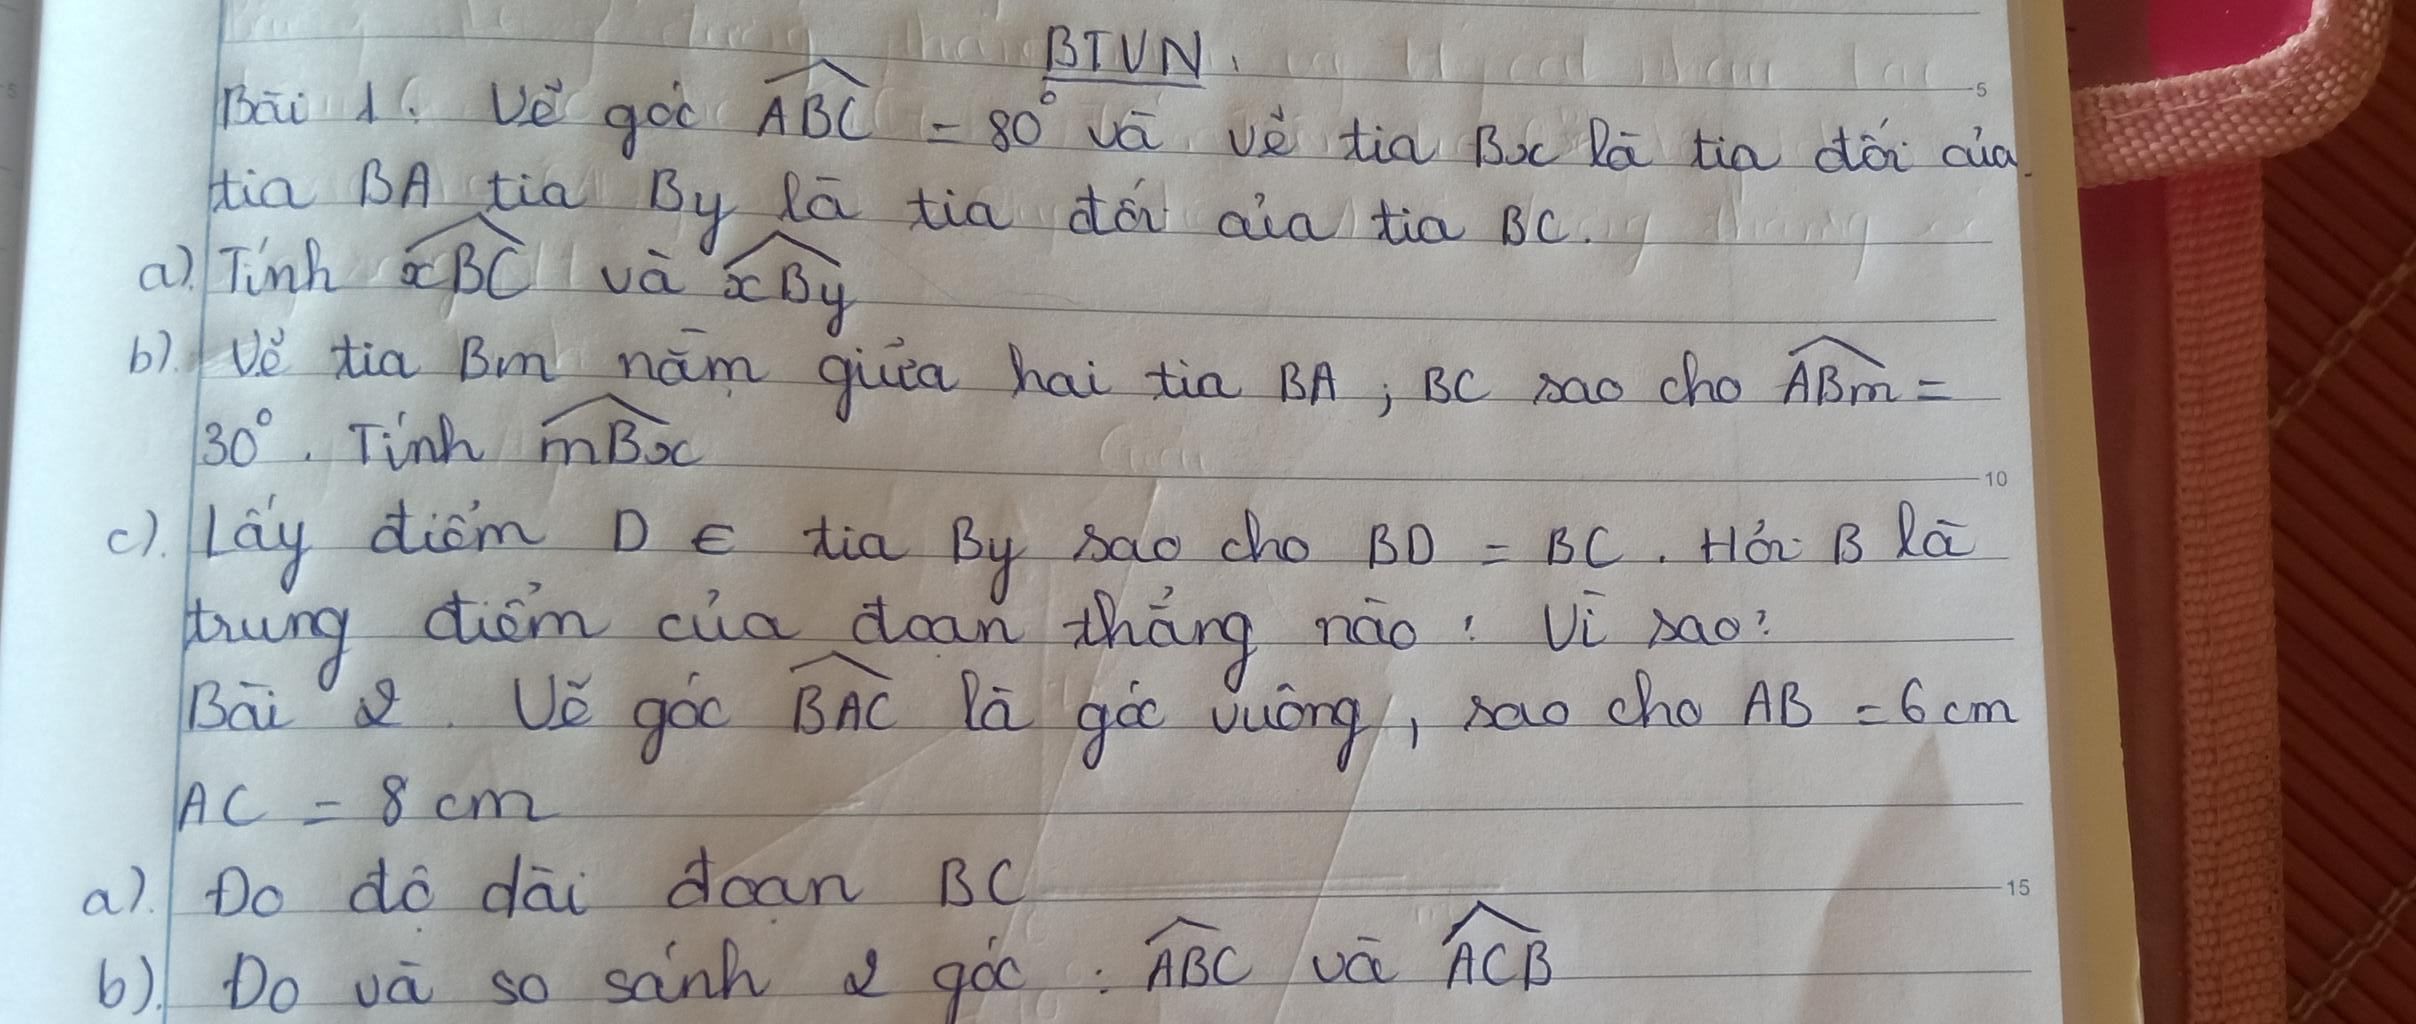 BTVN.
Bài 1. Vẽ góc ABC = 80° và vẽ tia Bx là tia đối của
tia BA tia By là tia đối của tia BC.
a). Tính xBC và xBy
b). Vẽ tia Bm nằm giữa hai tia BA ; BC sao cho ABm =
30°. Tính mBx
c). Lấy điểm D ∈ tia By sao cho BD = BC. Hỏi B là
trung điểm của đoạn thẳng nào? Vì sao?
Bài 2. Vẽ góc BAC là góc vuông, sao cho AB = 6 cm
AC = 8 cm
a). Đo độ dài đoạn BC
b). Đo và so sánh 2 góc : ABC và ACB
5
10
15